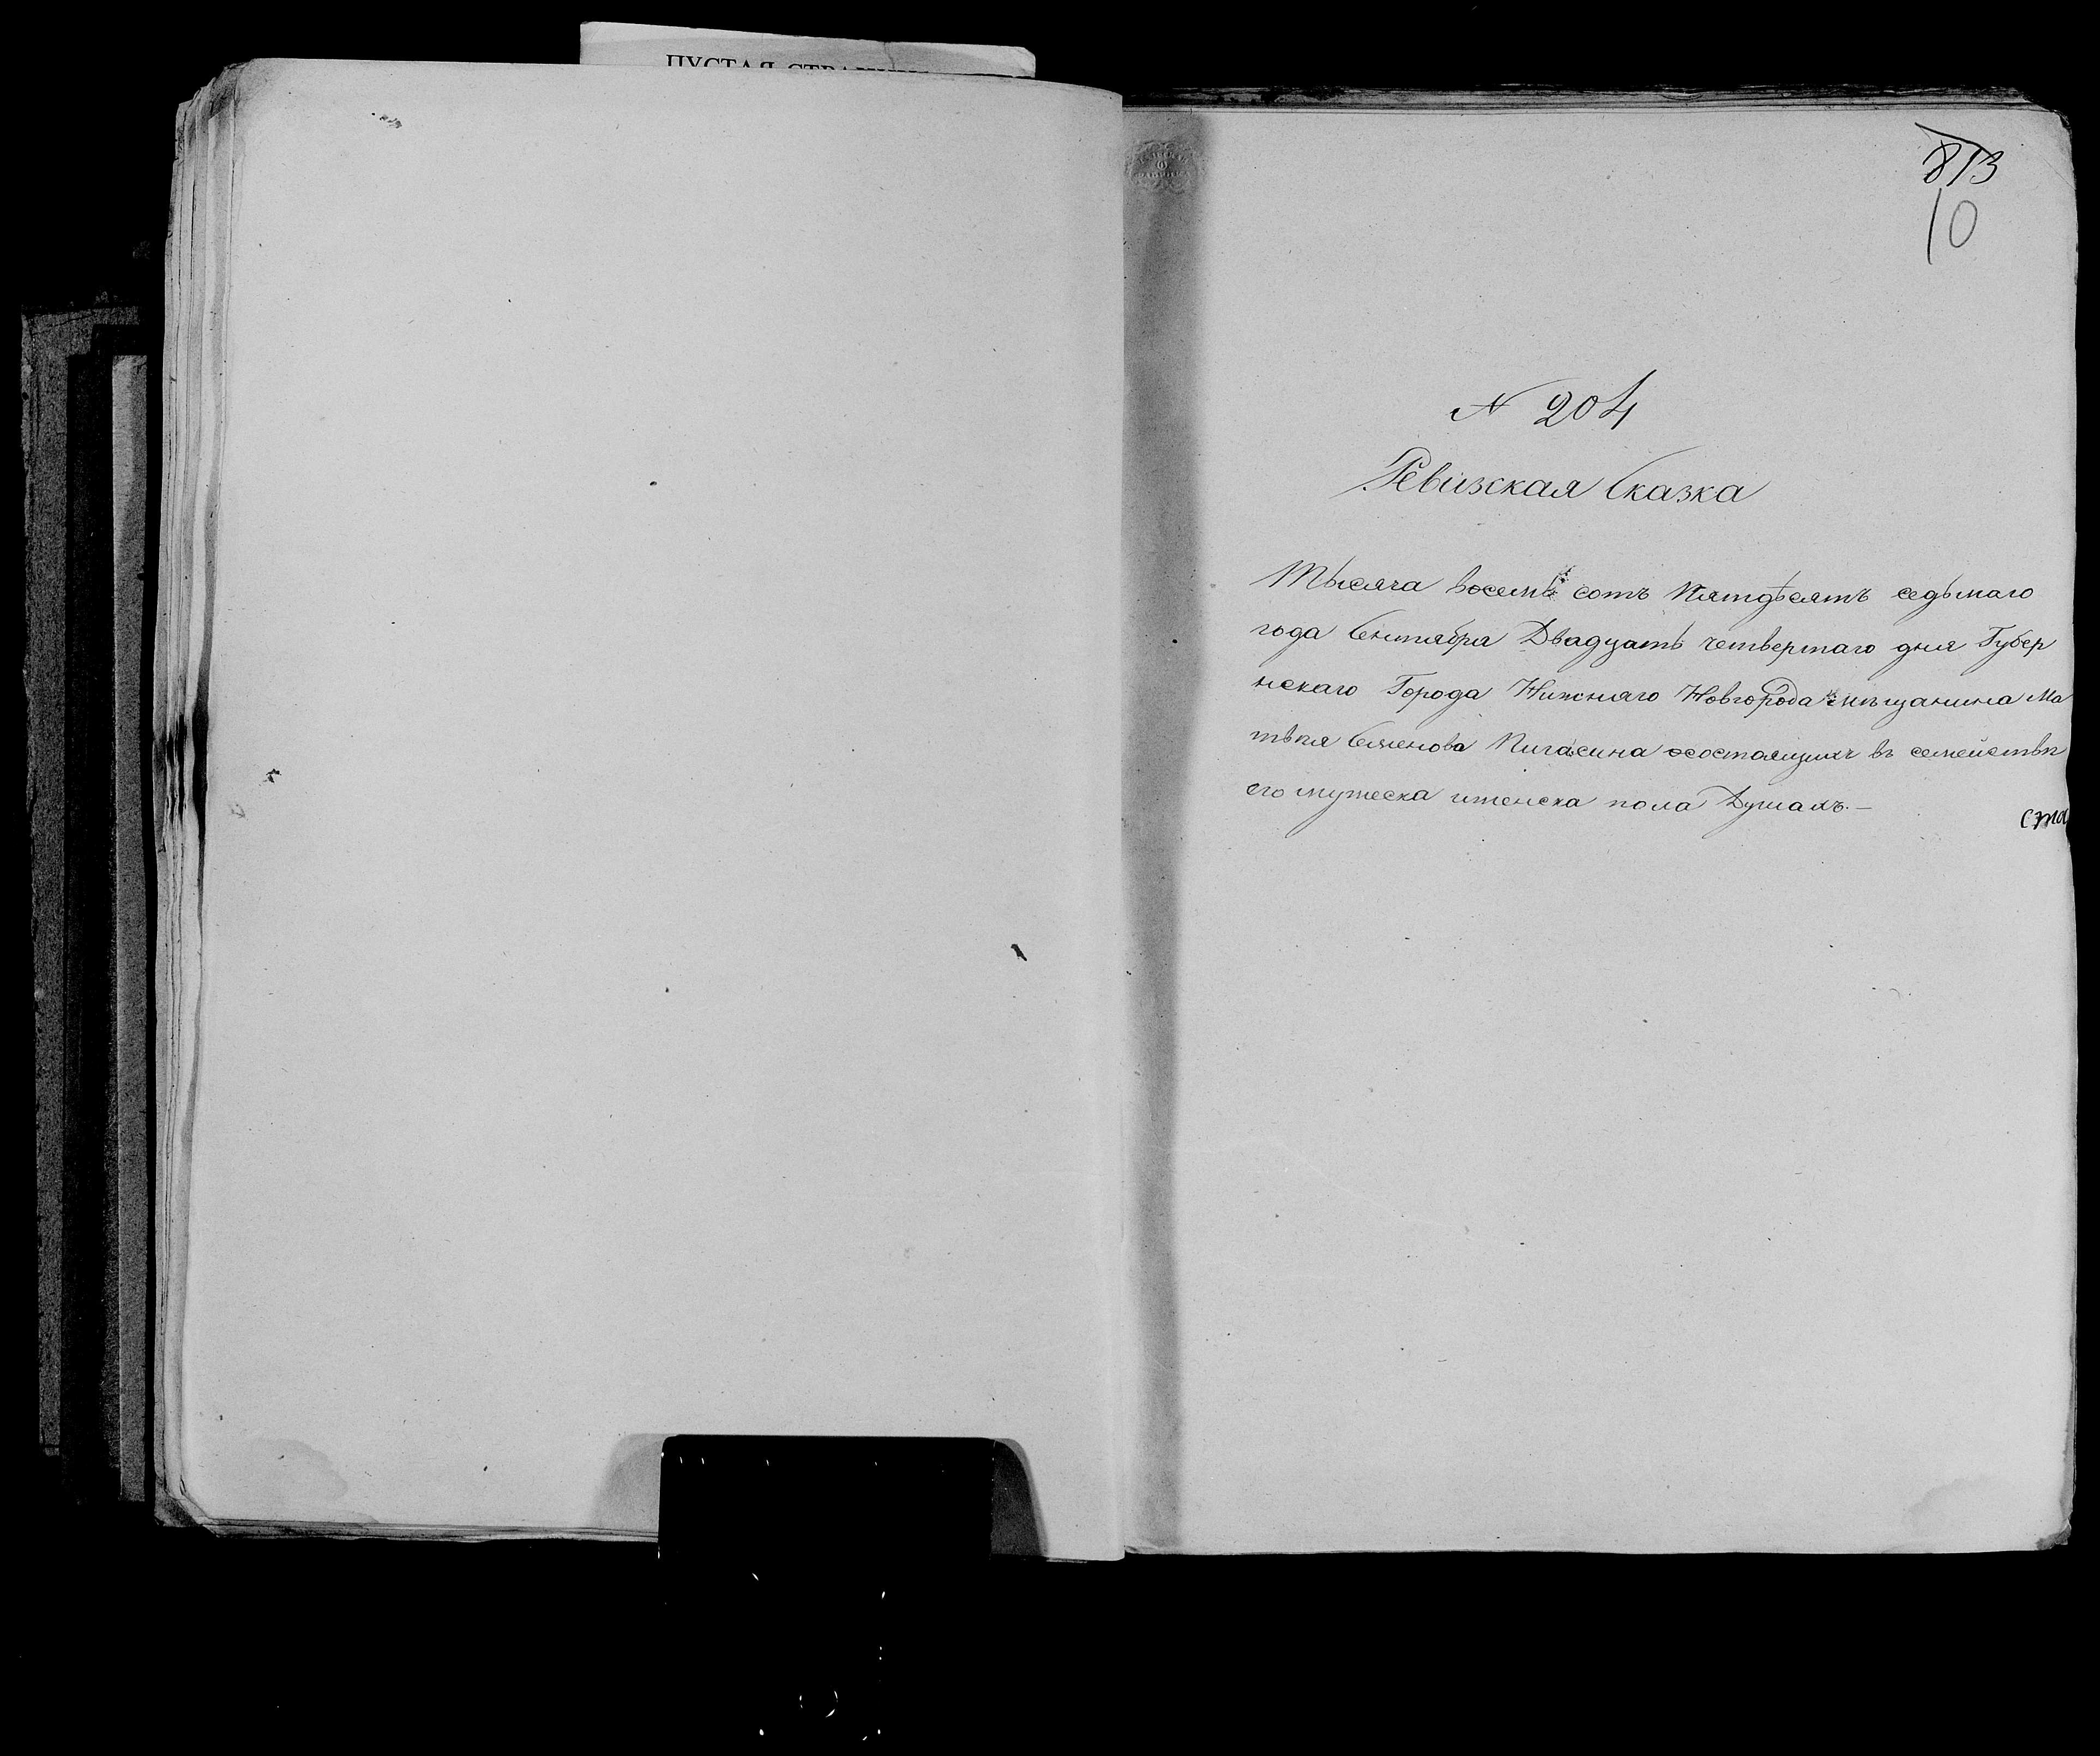 ПУСТАЯ
813
10
N 204
Ревизская Сказка
Тысяча восемь сотъ Пятдѣсятъ седьмаго
года Сентября Двадцать четвертаго дня Губер
нскаго Города Нижняго Новгорода мѣщанина Ма
твѣя Семенова Пигасина о состоящихъ въ семействѣ
его мужеска и женска пола Душахъ.—
ста